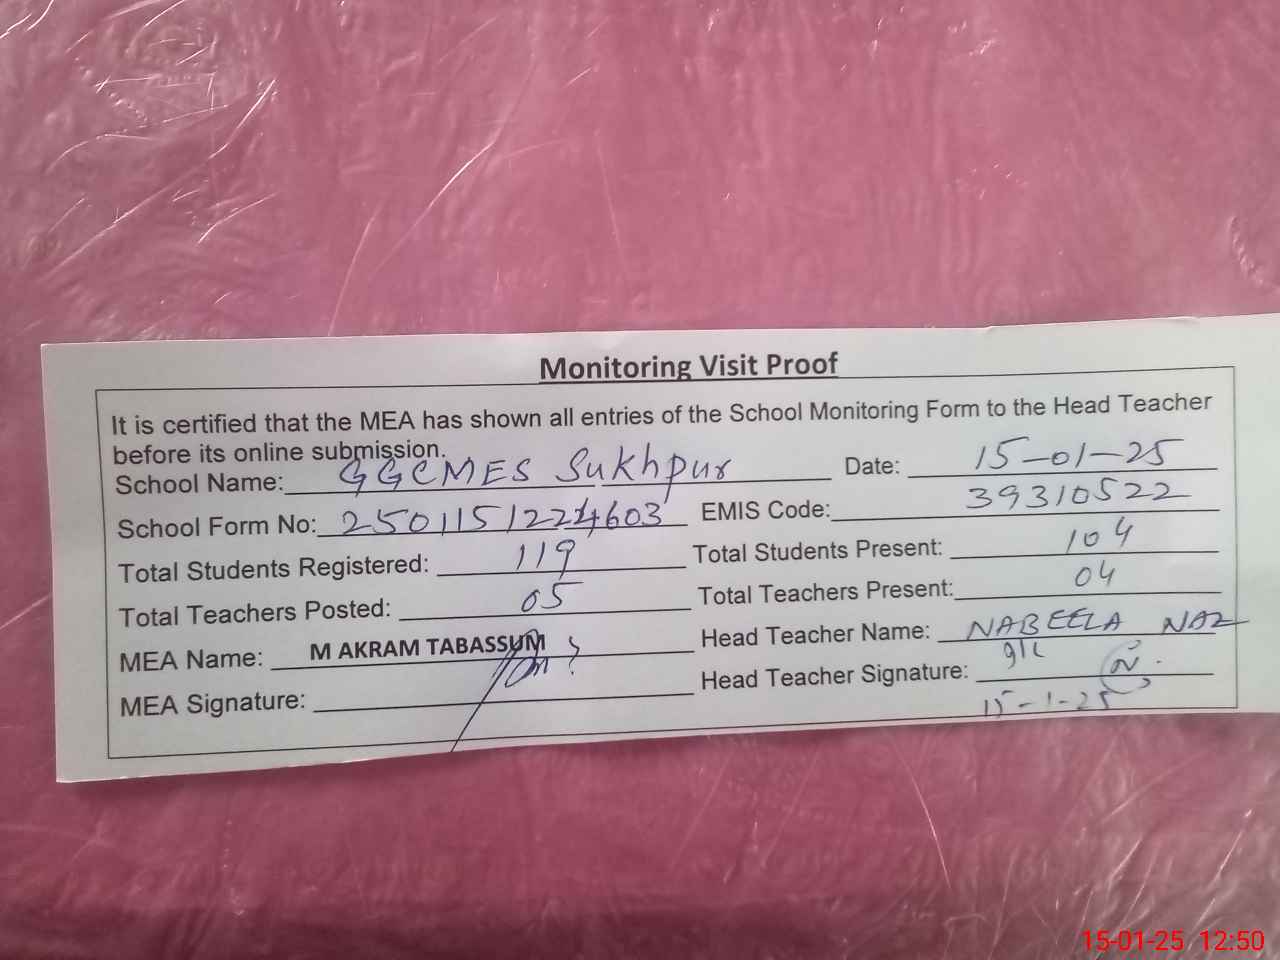 Monitoring Visit Proof
It is certified that the MEA has shown all entries of the School Monitoring Form to the Head Teacher
before its online submission.
School Name: GGCMES Sukhpur Date: 15-01-25
School Form No: 2501151224603 EMIS Code: 39310522
Total Students Registered: 119 Total Students Present: 104
Total Teachers Posted: 05 Total Teachers Present: 04
MEA Name: M AKRAM TABASSUM Head Teacher Name: NABEELA NAZ
MEA Signature: Head Teacher Signature:
15-1-25
15-01-25 12:50